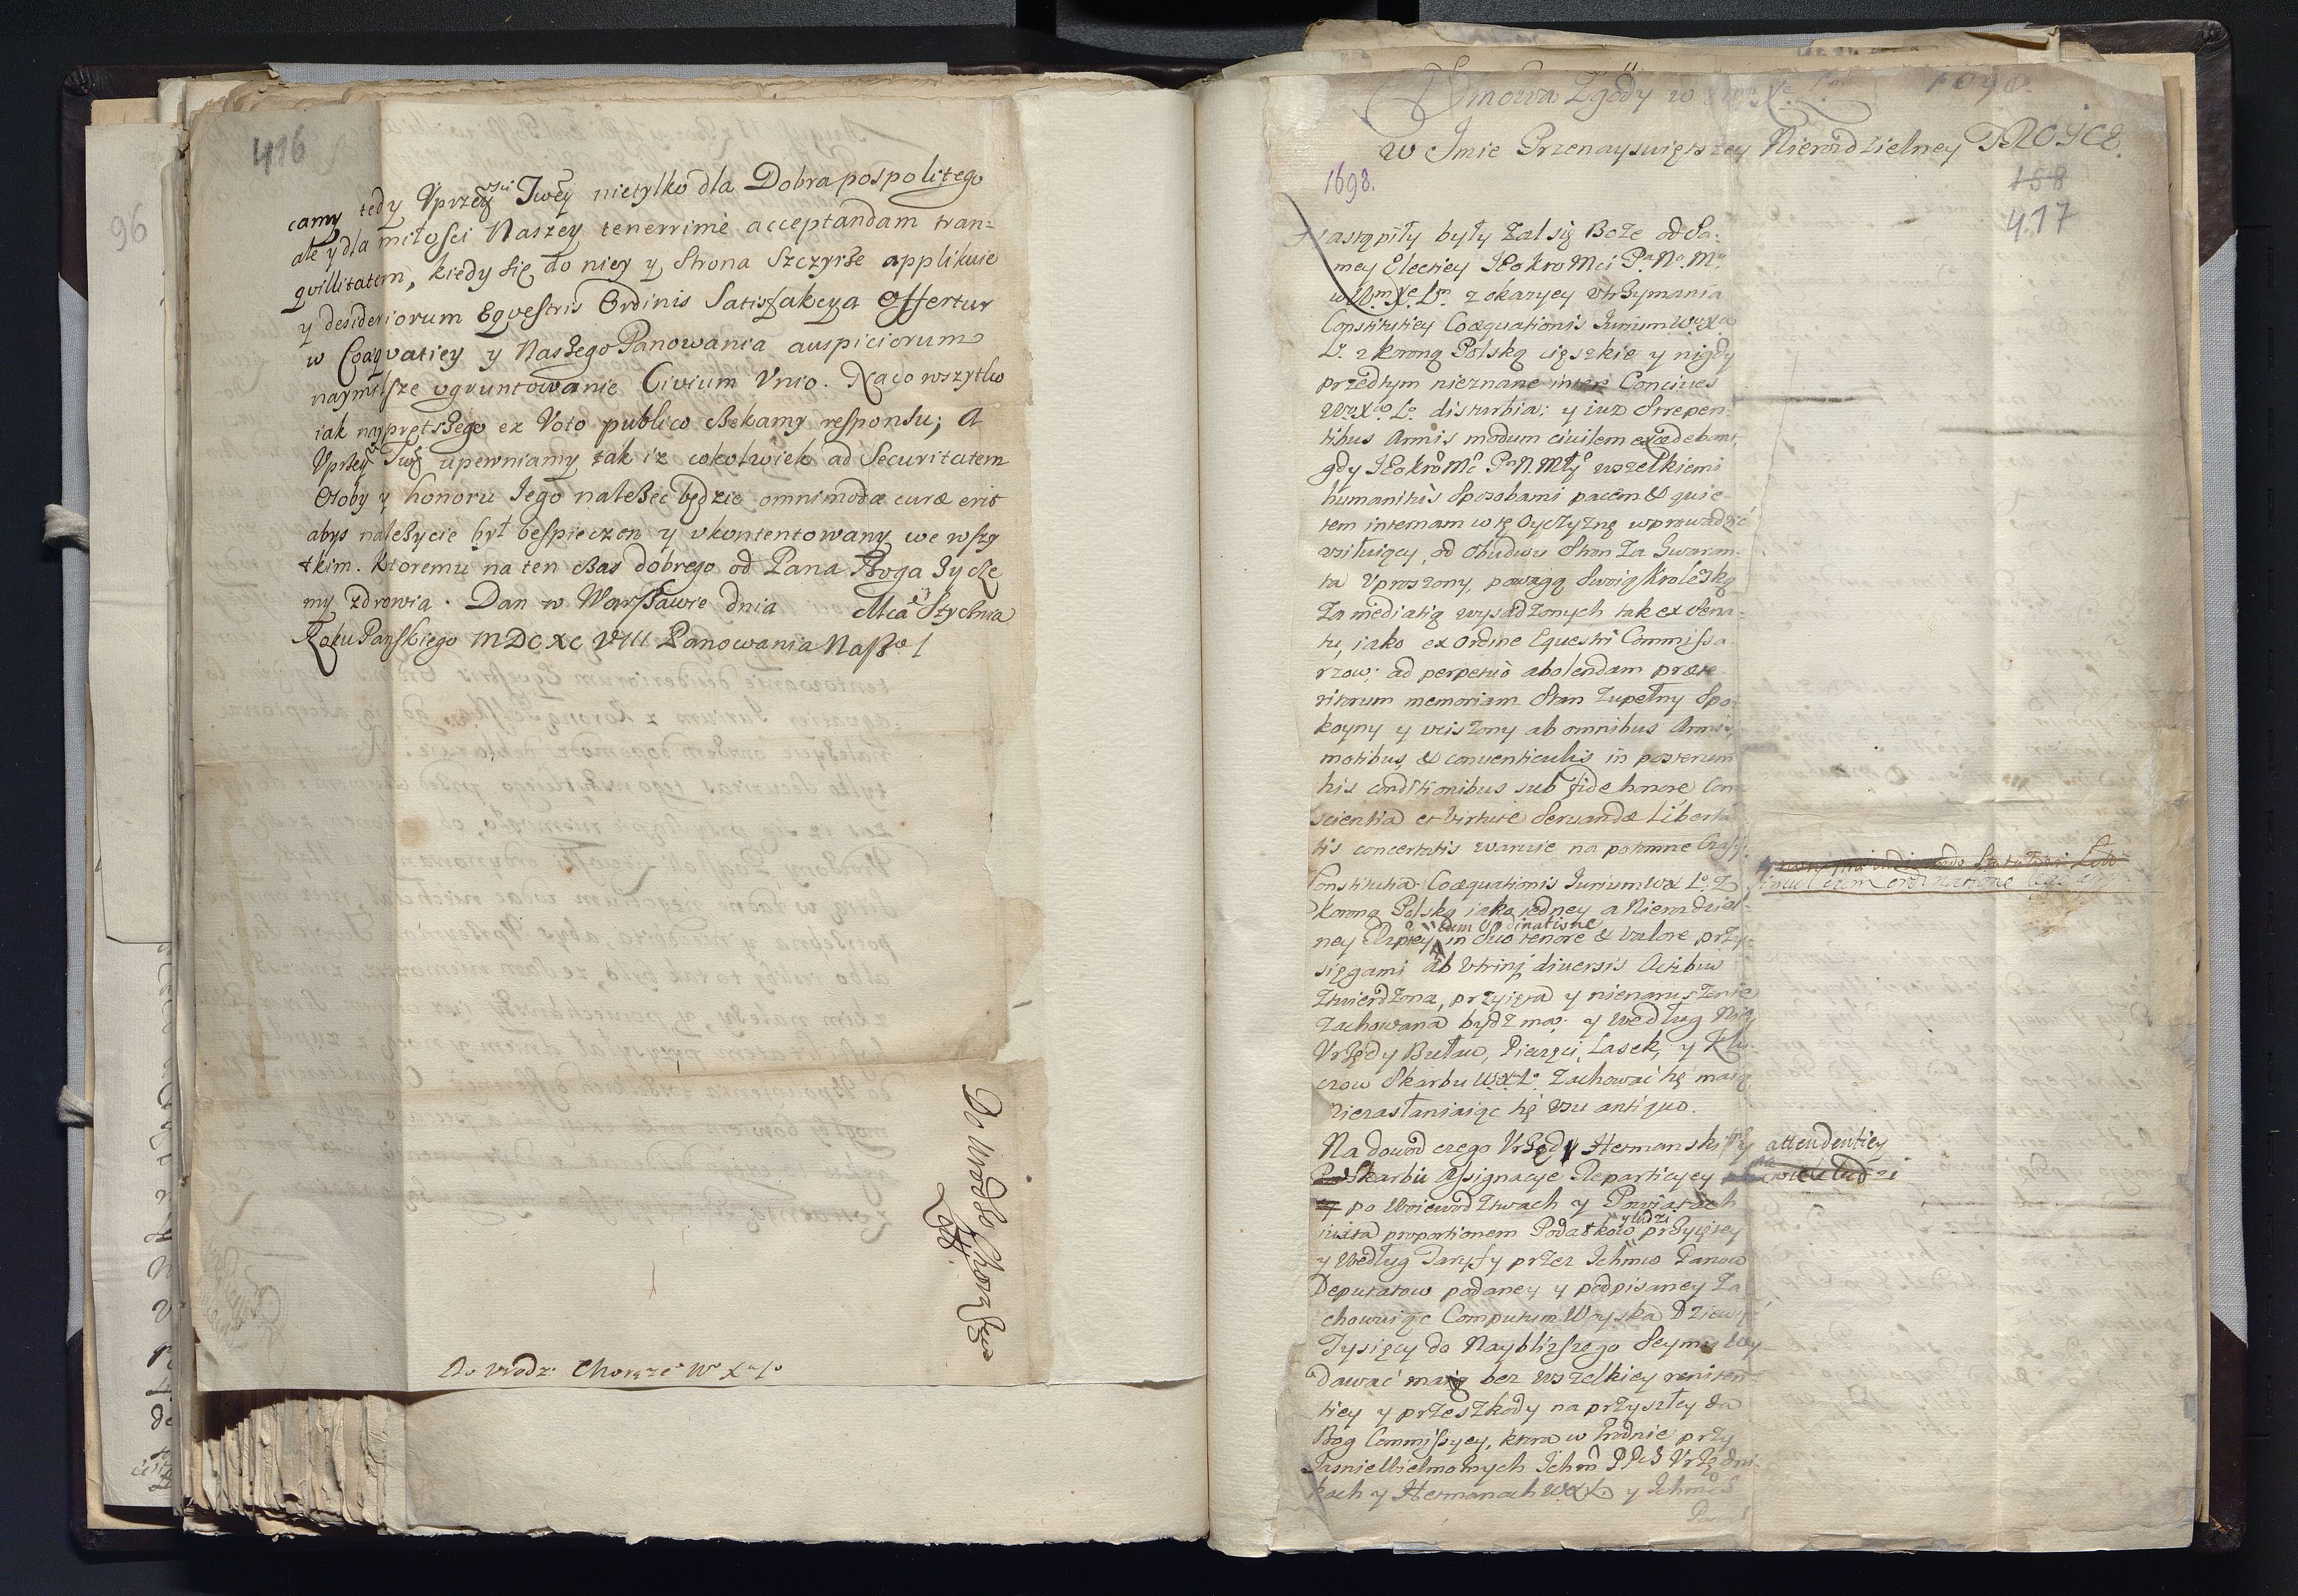 416
camy tedy Vprzey Twey nietylko dla Dobra pospolitego
ale y dla miłości Naszey tenerrimè acceptandam tran=
qvillitatem, kiedy się do niey y Strona Szczyrże applikuie
y desideriorum Eqvestris Ordinis Satisfakcya offertur
w Coæqvatiey y Naszego Panowania auspiciorum
naymilsze vgruntowanie Civium Vnio. Na co wszytko
iak nayprętszego ex Voto publico czekamy responsu; A
Vprzey Twą upewniamy tak iz cokolwiek ad Securitatem
Osoby y honoru Jego należeć będzie omnimodæ curæ erit
abys należycie był bespieczon y vkontentowany we wszy
tkim. Ktoremu na ten czas dobrego od Pana Boga życze
my zdrowia. Dan w Warszawie dnia Mca Stycznia
Roku Panskiego MDCXCVIII Panowania Nasze I
Do Vrodze Chorążego
Litt.
Do Vrodz: Chorąże W X L
96
Umowa Zgody w 1698.
W Imie Przenayswiętszey Nierozdzielney TROYCE.
1698.
158
417
Nastąpiły były Zal się Boże od Sa:
mey Electiey JEo Kro Mci Pa No Mo
w Wm Xe Lm z okazyey vtrzymania
Constitutiey Coæquationis Iurium Wo Xa
Lo z Koroną Polską cięszkie y nigdy
przedtym nieznane inter Concives
Wo Xo Lo disturbia; y iuz strepen
tibus Armis modum civilem excedebant,
gdy JEo Kro Mc Pn N. Mły wszelkiemi
humanitùs sposobami pacem & quie
tem internam w tę Oyczyznę wprowadzić
vsiłuiący, od obudwu Stron Za Gwaran
ta Vproszony, powagą Swoią Krolewską
Za mediatią wysadzonych tak ex Sena
tu, iako ex Ordine Equestri Commissa
rzow; ad perpetuò abolendam præte
ritorum memoriam Stan Zupełny Spo
koyny y vciszony ab omnibus Armis,
motibus, & conventiculis in posterum
his conditionibus sub fide honore Con
scientia et virtute Servandæ Liberta
tis concertatis waruie na potomne Czasy
Constitutia Coæquationis Iurium W X Lo Z
Koroną Polską iako iedney a Nierozdziel
ney Rzptey cum Ordinatione in Suo tenore & valore przy
sięgami ab Vtrinq diversis Actibus
Ztwierdzona, przyięta y nienaruszenie
Zachowana bydz ma. y według Niey
Vrzędy Buław, Pieczęci, Lasek, y Klu
czow Skarbu WXLo. Zachować się maią
niezasłaniaiąc się vsu antiquo.
simul cum Ordinatione
Na dowod czego Vrzędy Hetmanskie y attendentiey
Podskarbii Assignacye Reparticyey
y po Woiewodztwach y Powiatach
iuxta proportionem Podatkow y ludzi przyiętey
y według Taryfy przez Ichmw Panow
Deputatow podaney y podpisaney Za
chowuiąc Computum Woyska Dziewięć
Tysięcy do Naybliższego Seymu wy
dawać maią bez wszelkiey reniten
tiey y przeszkody na przyszłey da
Bog Commissyey, ktora w Grodnie przy
Jasnie Wielmożnych Ichm PP Vrzędni
kach y Hetmanach WXL y Ichmc
Panow